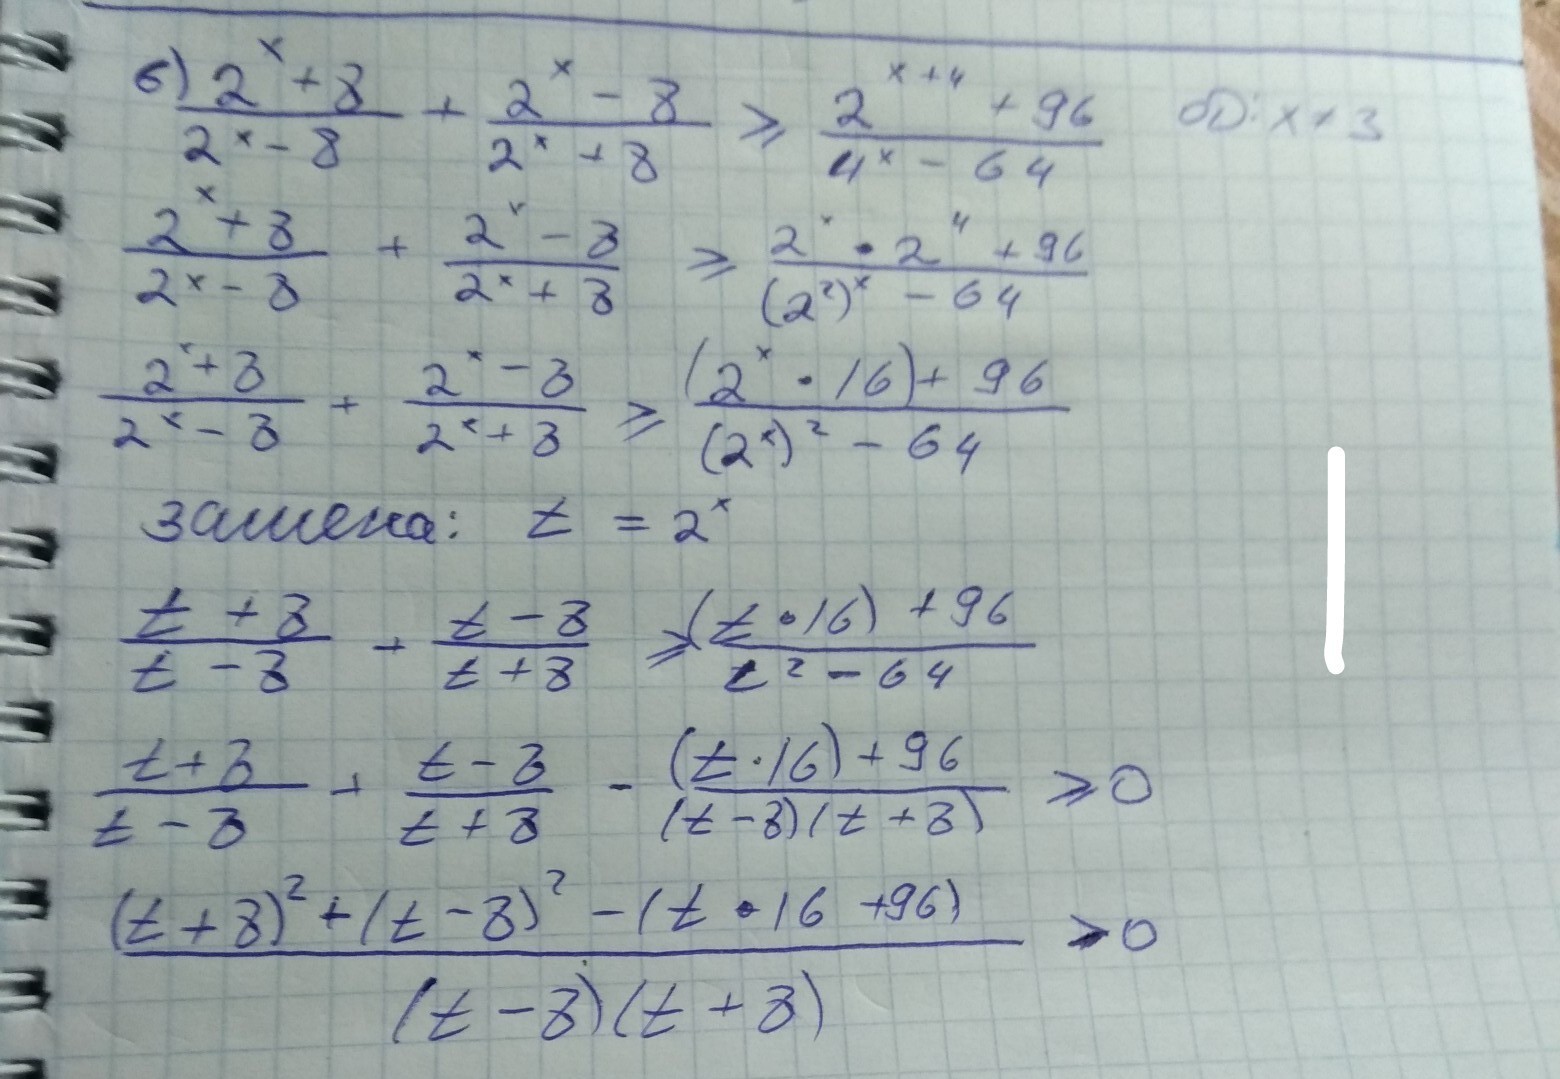 б) (2^x + 8)/(2^x - 8) + (2^x - 8)/(2^x + 8) ⩾ (2^(x+4) + 96)/(4^x - 64) ОО: x ≠ 3
(2^x + 8)/(2^x - 8) + (2^x - 8)/(2^x + 8) ⩾ (2^x • 2^4 + 96)/((2^2)^x - 64)
(2^x + 8)/(2^x - 8) + (2^x - 8)/(2^x + 8) ⩾ ((2^x • 16) + 96)/((2^x)^2 - 64)
замена: t = 2^x
(t + 8)/(t - 8) + (t - 8)/(t + 8) ⩾ ((t • 16) + 96)/(t^2 - 64)
(t + 8)/(t - 8) + (t - 8)/(t + 8) - ((t • 16) + 96)/((t - 8)(t + 8)) ⩾ 0
((t + 8)^2 + (t - 8)^2 - (t • 16 + 96))/((t - 8)(t + 8)) ⩾ 0